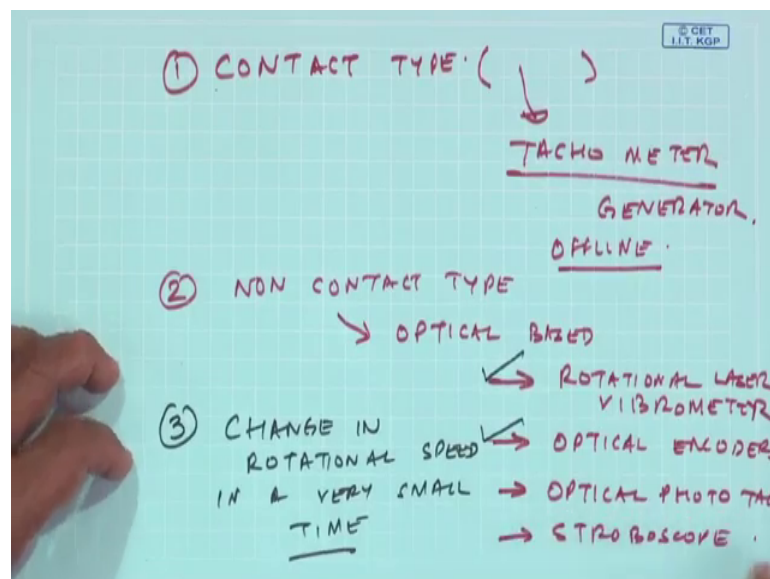 © CET
I.I.T. KGP
① CONTACT TYPE. ( )
TACHO METER
GENERATOR.
OFFLINE.
② NON CONTACT TYPE
→ OPTICAL BASED
→ ROTATIONAL LASER
VIBROMETER
③ CHANGE IN
ROTATIONAL SPEED
IN A VERY SMALL
TIME
→ OPTICAL ENCODER
→ OPTICAL PHOTO TAC
→ STROBOSCOPE.